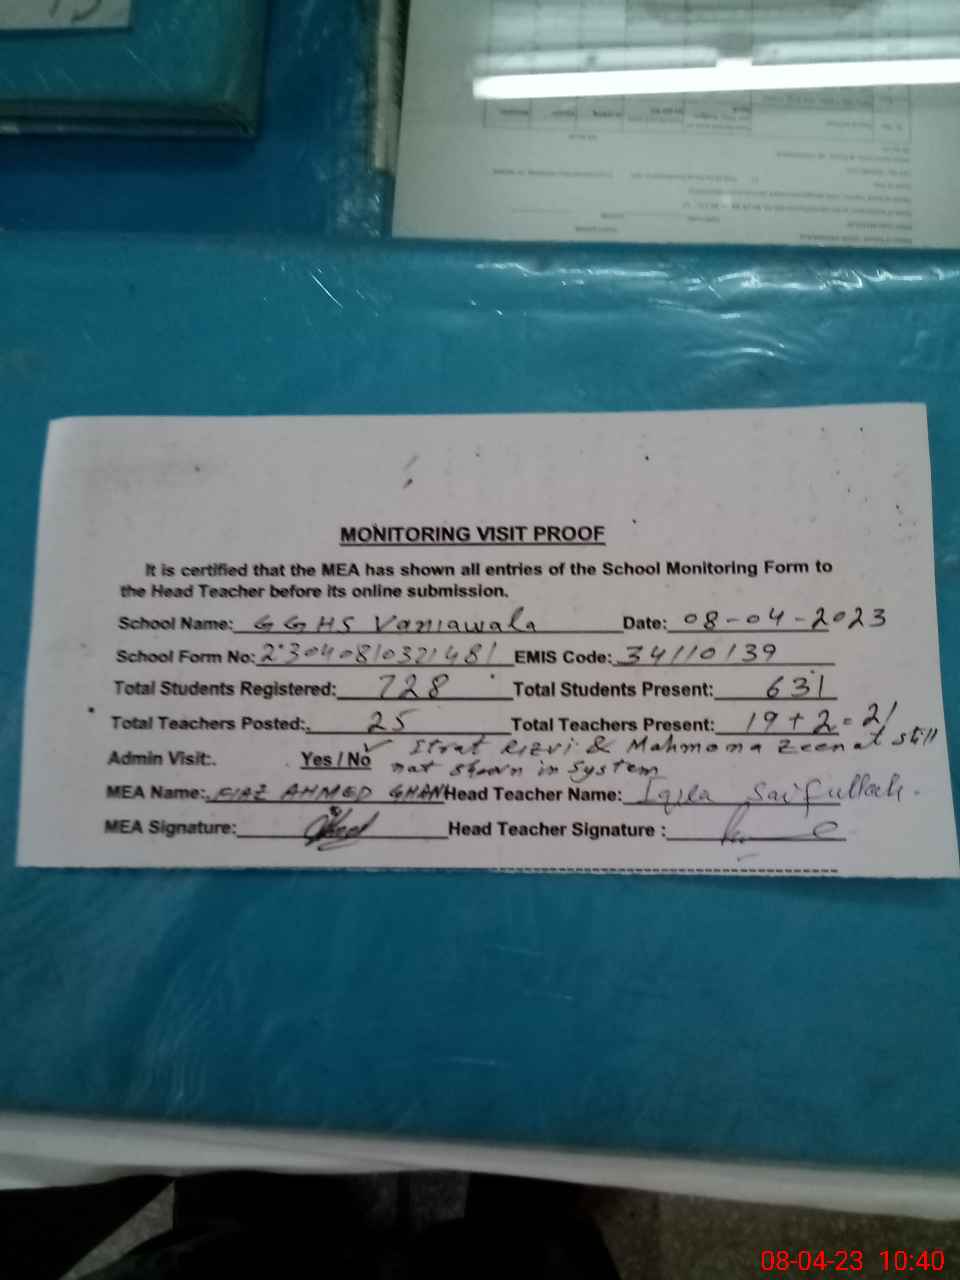 MONITORING VISIT PROOF
It is certified that the MEA has shown all entries of the School Monitoring Form to
the Head Teacher before its online submission.
School Name: GGHS Vaniawala Date: 08-04-2023
School Form No: 23040810321481 EMIS Code: 34110139
Total Students Registered: 728 Total Students Present: 631
Total Teachers Posted: 25 Total Teachers Present: 19+2=21
Admin Visit: Yes / No ✓ Rizvi & Mahmona Zeenat still
not shown in System
MEA Name: AHMED Head Teacher Name: Iqila Saifullah.
MEA Signature: Head Teacher Signature :
08-04-23 10:40